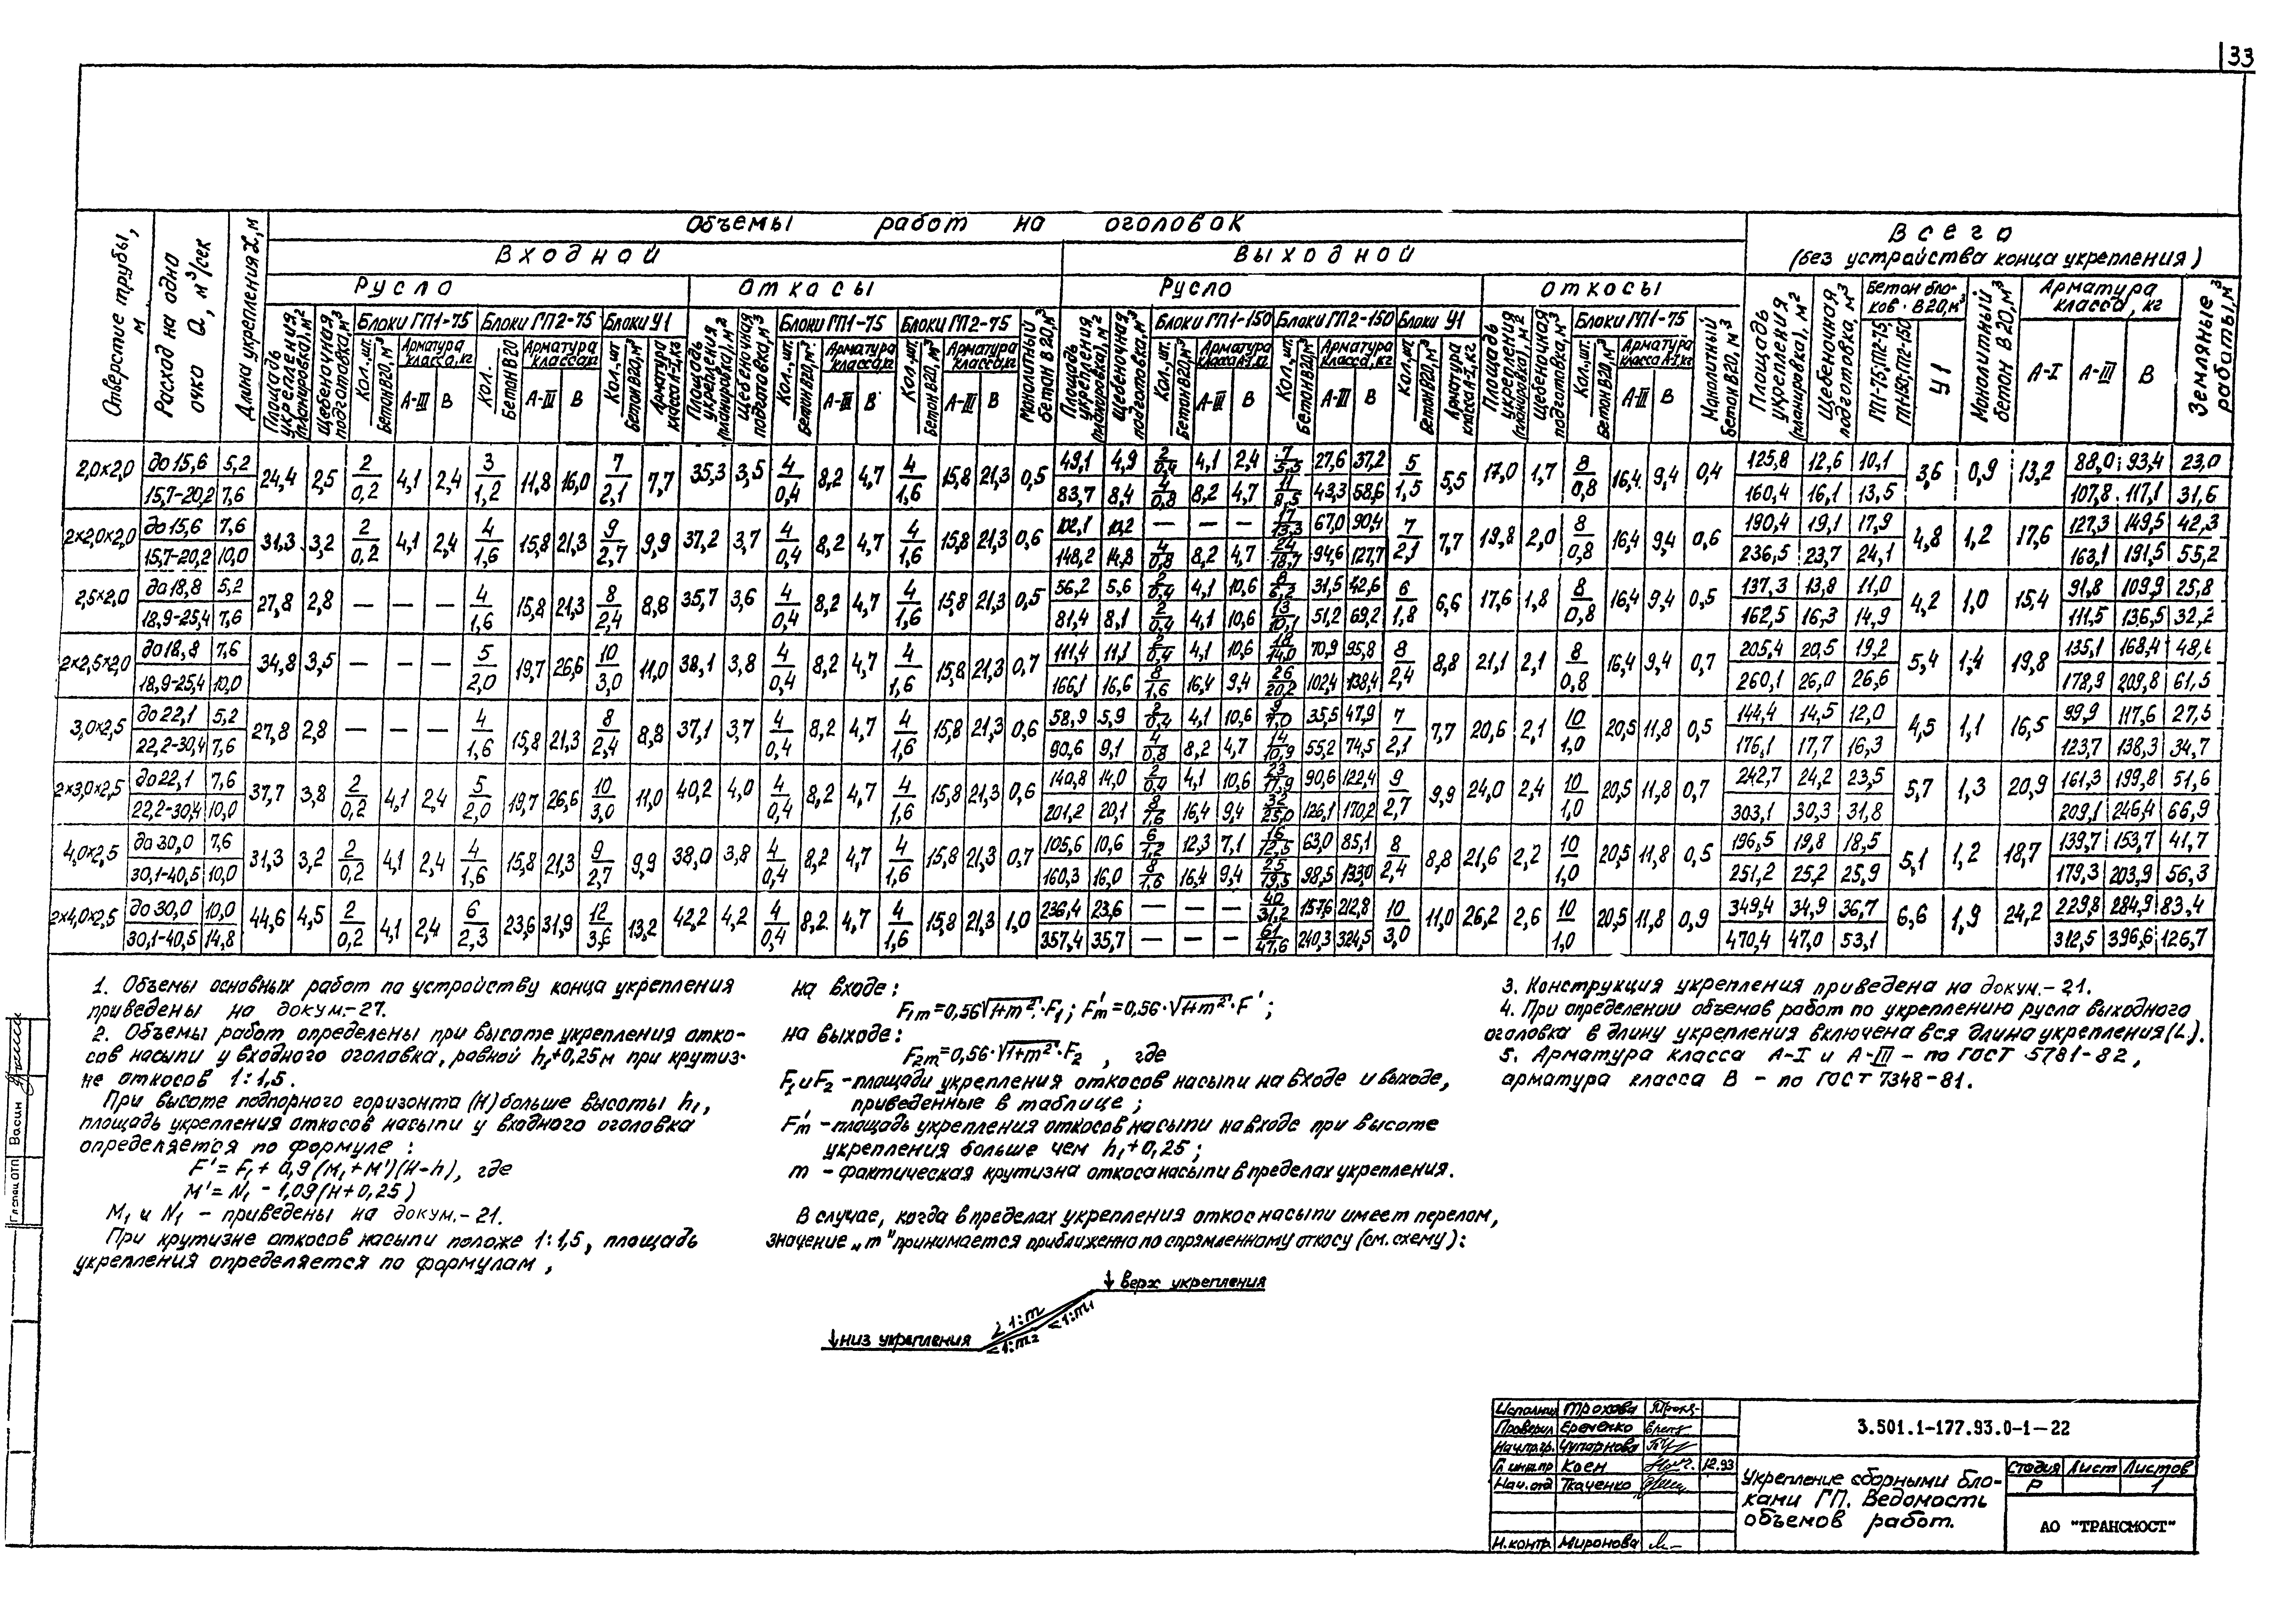 33
Объемы работ на оголовок
Всего
(без устройства конца укрепления)
Входной
Выходной
Русло
Откосы
Русло
Откосы
Отверстие трубы, м
Расход на одно очко Q, м³/сек
Длина укрепления L, м
Площадь укрепления (планировка), м²
Щебеночная подготовка, м³
Блоки ГП1-75
Блоки ГП2-75
Блоки У1
Блоки ГП1-75
Блоки ГП2-75
Монолитный бетон В20, м³
Блоки ГП1-150
Блоки ГП2-150
Блоки У1
Блоки ГП1-75
Монолитный бетон В20, м³
Площадь укрепления (планировка), м²
Щебеночная подготовка, м³
Бетон блоков В20, м³
ГП1-75, ГП2-75, ГП1-150, ГП2-150
У1
Монолитный бетон В20, м³
Арматура класса, кг
А-I А-III В
Земляные работы, м³
2,0×2,0 до 15,6 5,2 24,4 2,5 2/0,2 4,1 2,4 3/1,2 11,8 16,0 7/2,1 7,7 35,3 3,5 4/0,4 8,2 4,7 4/1,6 15,8 21,3 0,5 49,1 4,9 2/0,4 4,1 2,4 7/5,5 27,6 37,2 5/1,5 5,5 17,0 1,7 8/0,8 16,4 9,4 0,4 125,8 12,6 10,1 3,6 0,9 13,2 88,0 93,4 23,0
15,7-20,2 7,6 83,7 8,4 4/0,8 8,2 4,7 11/8,5 43,3 58,6 160,4 16,1 13,5 107,8 117,1 31,6
2×2,0×2,0 до 15,6 7,6 31,3 3,2 2/0,2 4,1 2,4 4/1,6 15,8 21,3 9/2,7 9,9 37,2 3,7 4/0,4 8,2 4,7 4/1,6 15,8 21,3 0,6 102,1 10,2 — — — 17/13,3 67,0 90,4 7/2,1 7,7 19,8 2,0 8/0,8 16,4 9,4 0,6 190,4 19,1 17,9 4,8 1,2 17,6 127,3 149,5 42,3
15,7-20,2 10,0 148,2 14,8 4/0,8 8,2 4,7 24/18,7 94,6 127,7 236,5 23,7 24,1 163,1 191,5 55,2
2,5×2,0 до 18,8 5,2 27,8 2,8 — — — 4/1,6 15,8 21,3 8/2,4 8,8 35,7 3,6 4/0,4 8,2 4,7 4/1,6 15,8 21,3 0,5 56,2 5,6 2/0,4 4,1 10,6 8/6,2 31,5 42,6 6/1,8 6,6 17,6 1,8 8/0,8 16,4 9,4 0,5 137,3 13,8 11,0 4,2 1,0 15,4 91,8 109,9 25,8
18,9-25,4 7,6 81,4 8,1 2/0,4 4,1 10,6 13/10,1 51,2 69,2 162,5 16,3 14,9 111,5 136,5 32,2
2×2,5×2,0 до 18,8 7,6 34,8 3,5 — — — 5/2,0 19,7 26,6 10/3,0 11,0 38,1 3,8 4/0,4 8,2 4,7 4/1,6 15,8 21,3 0,7 111,4 11,1 2/0,4 4,1 10,6 18/14,0 70,9 95,8 8/2,4 8,8 21,1 2,1 8/0,8 16,4 9,4 0,7 205,4 20,5 19,2 5,4 1,4 19,8 135,1 168,4 48,6
18,9-25,4 10,0 166,1 16,6 8/1,6 16,4 9,4 26/20,2 102,4 138,4 260,1 26,0 26,6 178,9 209,8 61,5
3,0×2,5 до 22,1 5,2 27,8 2,8 — — — 4/1,6 15,8 21,3 8/2,4 8,8 37,1 3,7 4/0,4 8,2 4,7 4/1,6 15,8 21,3 0,6 58,9 5,9 2/0,4 4,1 10,6 9/7,0 35,5 47,9 7/2,1 7,7 20,6 2,1 10/1,0 20,5 11,8 0,5 144,4 14,5 12,0 4,5 1,1 16,5 99,9 117,6 27,5
22,2-30,4 7,6 90,6 9,1 4/0,8 8,2 4,7 14/10,9 55,2 74,5 176,1 17,7 16,3 123,7 138,3 34,7
2×3,0×2,5 до 22,1 7,6 37,7 3,8 2/0,2 4,1 2,4 5/2,0 19,7 26,6 10/3,0 11,0 40,2 4,0 4/0,4 8,2 4,7 4/1,6 15,8 21,3 0,6 140,8 14,0 2/0,4 4,1 10,6 23/17,9 90,6 122,4 9/2,7 9,9 24,0 2,4 10/1,0 20,5 11,8 0,7 242,7 24,2 23,5 5,7 1,3 20,9 161,3 199,8 51,6
22,2-30,4 10,0 201,2 20,1 8/1,6 16,4 9,4 32/25,0 126,1 170,2 303,1 30,3 31,8 209,1 246,4 66,9
4,0×2,5 до 30,0 7,6 31,3 3,2 2/0,2 4,1 2,4 4/1,6 15,8 21,3 9/2,7 9,9 38,0 3,8 4/0,4 8,2 4,7 4/1,6 15,8 21,3 0,7 105,6 10,6 6/1,2 12,3 7,1 16/12,5 63,0 85,1 8/2,4 8,8 21,6 2,2 10/1,0 20,5 11,8 0,5 196,5 19,8 18,5 5,1 1,2 18,7 139,7 153,7 41,7
30,1-40,5 10,0 160,3 16,0 8/1,6 16,4 9,4 25/19,5 98,5 133,0 251,2 25,2 25,9 179,3 203,9 56,3
2×4,0×2,5 до 30,0 10,0 44,6 4,5 2/0,2 4,1 2,4 6/2,3 23,6 31,9 12/3,6 13,2 42,2 4,2 4/0,4 8,2 4,7 4/1,6 15,8 21,3 1,0 236,4 23,6 — — — 40/31,2 157,6 212,8 10/3,0 11,0 26,2 2,6 10/1,0 20,5 11,8 0,9 349,4 34,9 36,7 6,6 1,9 24,2 229,8 284,9 83,4
30,1-40,5 14,8 357,4 35,7 — — — 61/47,6 240,3 324,5 470,4 47,0 53,1 312,5 396,6 126,7
1. Объемы основных работ по устройству конца укрепления
приведены на докум.-27.
2. Объемы работ определены при высоте укрепления отко-
сов насыпи у входного оголовка, равной h₁+0,25м при крутиз-
не откосов 1:1,5.
При высоте подпорного горизонта (H) больше высоты h₁,
площадь укрепления откосов насыпи у входного оголовка
определяется по формуле:
F' = F₁ + 0,9(M₁+M')(H-h), где
M' = N₁ - 1,09(H+0,25)
M₁ и N₁ - приведены на докум.-21.
При крутизне откосов насыпи положе 1:1,5, площадь
укрепления определяется по формулам,
на входе:
F₁m=0,56√1+m²·F₁; F'm=0,56·√1+m²·F';
на выходе:
F₂m=0,56·√1+m²·F₂, где
F₁ и F₂ -площади укрепления откосов насыпи на входе и выходе,
приведенные в таблице;
F'm -площадь укрепления откосов насыпи на входе при высоте
укрепления больше чем h₁+0,25;
m - фактическая крутизна откоса насыпи в пределах укрепления.
В случае, когда в пределах укрепления откос насыпи имеет перелом,
значение „m" принимается приближенно по спрямленному откосу (см. схему):
↓ верх укрепления
1:m
<1:m₁
<1:m₂
↓низ укрепления
3. Конструкция укрепления приведена на докум.-21.
4. При определении объемов работ по укреплению русла выходного
оголовка в длину укрепления включена вся длина укрепления(L).
5. Арматура класса А-I и А-III - по ГОСТ 5781-82,
арматура класса В - по ГОСТ 7348-81.
Исполнил Трохова
Проверил Ереченко
Нач.пр.гр. Чупарнова
Гл.инж.пр Коен 12.93
Нач.отд Ткаченко
Н.контр. Миронова
3.501.1-177.93.0-1-22
Укрепление сборными бло-
ками ГП. Ведомость
объемов работ.
Стадия Лист Листов
Р 1
АО "ТРАНСМОСТ"
Гл.спец ОТП Васин